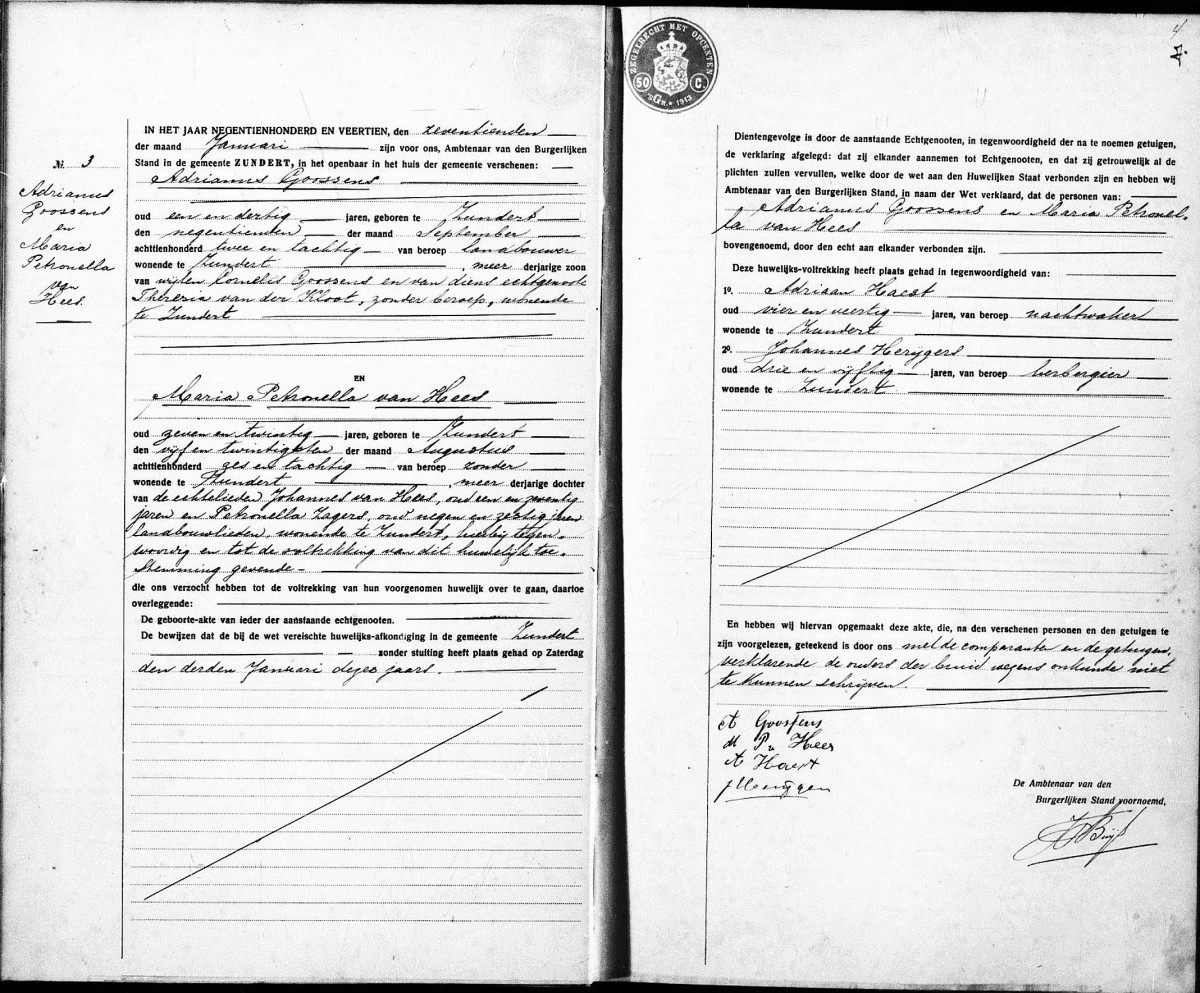 № 3
Adrianus
Goossens
en
Maria
Petronella
van
Hees.
IN HET JAAR NEGENTIENHONDERD EN VEERTIEN, den zeventienden
der maand Januari zijn voor ons, Ambtenaar van den Burgerlijken
Stand in de gemeente ZUNDERT, in het openbaar in het huis der gemeente verschenen:
Adrianus Goossens
oud een en dertig jaren, geboren te Zundert
den negentienden der maand September
achttienhonderd twee en tachtig van beroep landbouwer
wonende te Zundert, meer derjarige zoon
van wijlen Cornelis Goossens en van diens echtgenoote
Theresia van der Kloot, zonder beroep, wonende
te Zundert
EN
Maria Petronella van Hees
oud zeven en twintig jaren, geboren te Zundert
den vijf en twintigsten der maand Augustus
achttienhonderd zes en tachtig van beroep zonder
wonende te Zundert, meer derjarige dochter
van de echtelieden Johannes van Hees, oud een en zeventig
jaren en Petronella Zagers, oud negen en zestig jaren
landbouwlieden, wonende te Zundert, hierbij tegen-
woordig en tot de voltrekking van dit huwelijk toe-
stemming gevende
die ons verzocht hebben tot de voltrekking van hun voorgenomen huwelijk over te gaan, daartoe
overleggende:
De geboorte-akte van ieder der aanstaande echtgenooten.
De bewijzen dat de bij de wet vereischte huwelijks-afkondiging in de gemeente Zundert
zonder stuiting heeft plaats gehad op Zaterdag
den derden Januari dezes jaars.
ZEGELRECHT MET OPCENTEN
50 C.
'SGR. 1913
4
Dientengevolge is door de aanstaande Echtgenooten, in tegenwoordigheid der na te noemen getuigen,
de verklaring afgelegd: dat zij elkander aannemen tot Echtgenooten, en dat zij getrouwelijk al de
plichten zullen vervullen, welke door de wet aan den Huwelijken Staat verbonden zijn en hebben wij
Ambtenaar van den Burgerlijken Stand, in naam der Wet verklaard, dat de personen van:
Adrianus Goossens en Maria Petronel-
la van Hees
bovengenoemd, door den echt aan elkander verbonden zijn.
Deze huwelijks-voltrekking heeft plaats gehad in tegenwoordigheid van:
1º. Adriaan Haest
oud vier en veertig jaren, van beroep nachtwaker
wonende te Zundert
2º. Johannes Herijgers
oud drie en vijftig jaren, van beroep herbergier
wonende te Zundert
En hebben wij hiervan opgemaakt deze akte, die, na den verschenen personen en den getuigen te
zijn voorgelezen, geteekend is door ons met de comparanten en de getuigen,
verklarende de ouders der bruid wegens onkunde niet
te kunnen schrijven.
A Goossens
M P v Hees
A Haest
J Herijgers
De Ambtenaar van den
Burgerlijken Stand voornoemd,